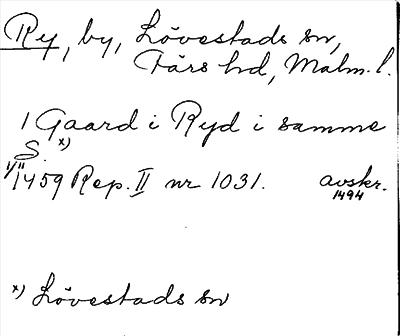 Ry, by, Lövestads sn,
Färs hd, Malm. l.
1 Gaard i Ryd i samme
S. x)
1/11 1459 Rep. II nr 1031. avskr.
1494
x) Lövestads sn